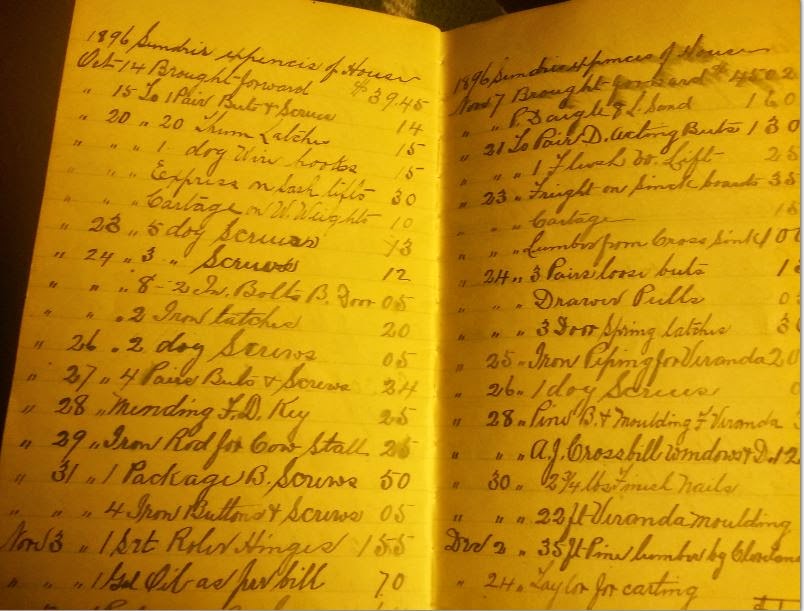 1896 Sundrie expences of House
Oct 14 Brought forward $39.45
" 15 To 1 Pair Buts & Screws 14
" 20 " 20 Thum Latches 15
" " " 1 doz Wire hooks 15
" " " Express on Sash lifts 30
" " " Cartage on W. Weights 10
" 23 " 5 doz Screws 13
" 24 " 3 " Screws 12
" " " 8-2 In. Bolts B. Door 05
" " " 2 Iron latches 20
" 26 " 2 doz Screws 05
" 27 " 4 Pairs Buts & Screws 24
" 28 " Mending F.D. Key 25
" 29 " Iron Rod for Cow Stall 25
" 31 " 1 Package B. Screws 50
" " " 4 Iron Buttons & Screws 05
Nov 3 " 1 Set Roler Hinges 1 55
" " " 1 Gal Oil as per bill 70
1896 Sundrie expences of House
Nov 7 Brought forward $45 02
" " P. Daigle & L. Sond 1 60
" 21 To Pair D. Acting Buts 1 30
" " " 1 Flush W. Lift 25
" 23 " Freight on Sinck boards 35
" " " Cartage 15
" " " Lumber from Cross Sink 1 0
" 24 " 3 Pairs loose buts 1
" " " Drawer Pulls 0
" " " 3 Door Spring latches 3
" 25 " Iron Piping for Veranda 2 0
" 26 " 1 doz Screws 0
" 28 " Pine B. & Moulding F Veranda
" " " A.J. Crossbill windows & D. 12
" 30 " 2 3/4 lbs Finish Nails
" " " 22 ft Veranda moulding
Dec 2 " 35 ft Pine lumber by Cleveland
" 24 " Taylor for carting